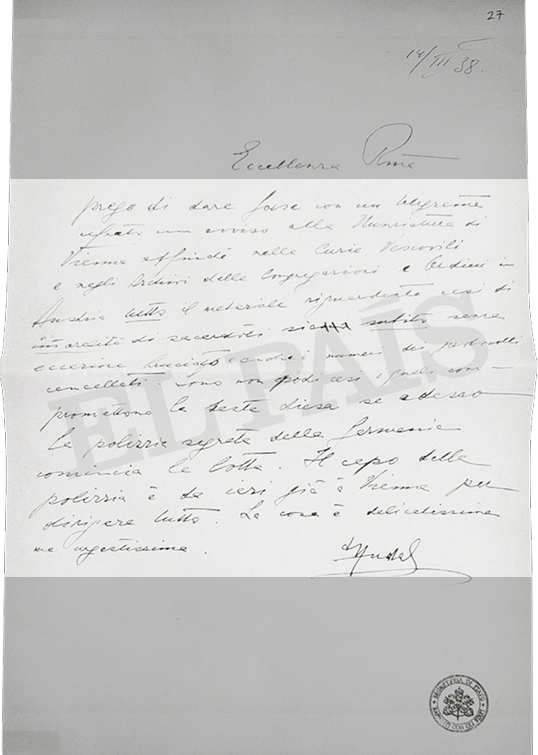 27
14/III 38.
Eccellenza Rma
prego di dare forse con un telegramma
cifrato un avviso alla Nunziatura di
Vienna affinché nelle Curie Vescovili
e negli Archivi delle Congregazioni e Ordini in
Austria tutto il materiale riguardante casi di
di sacerdoti subito senza
eccezione bruciato e anche i numeri di protocolli
cancellati. Sono non pochi casi i quali com-
promettono la Santa Chiesa se adesso
la polizzia segreta della Germania
comincia la lotta. Il capo della
polizzia è da ieri già a Vienna per
dirigere tutto. La cosa è delicatissima
ma urgentissima.
Hudal
EL PAÍS
SEGRETERIA DI STATO